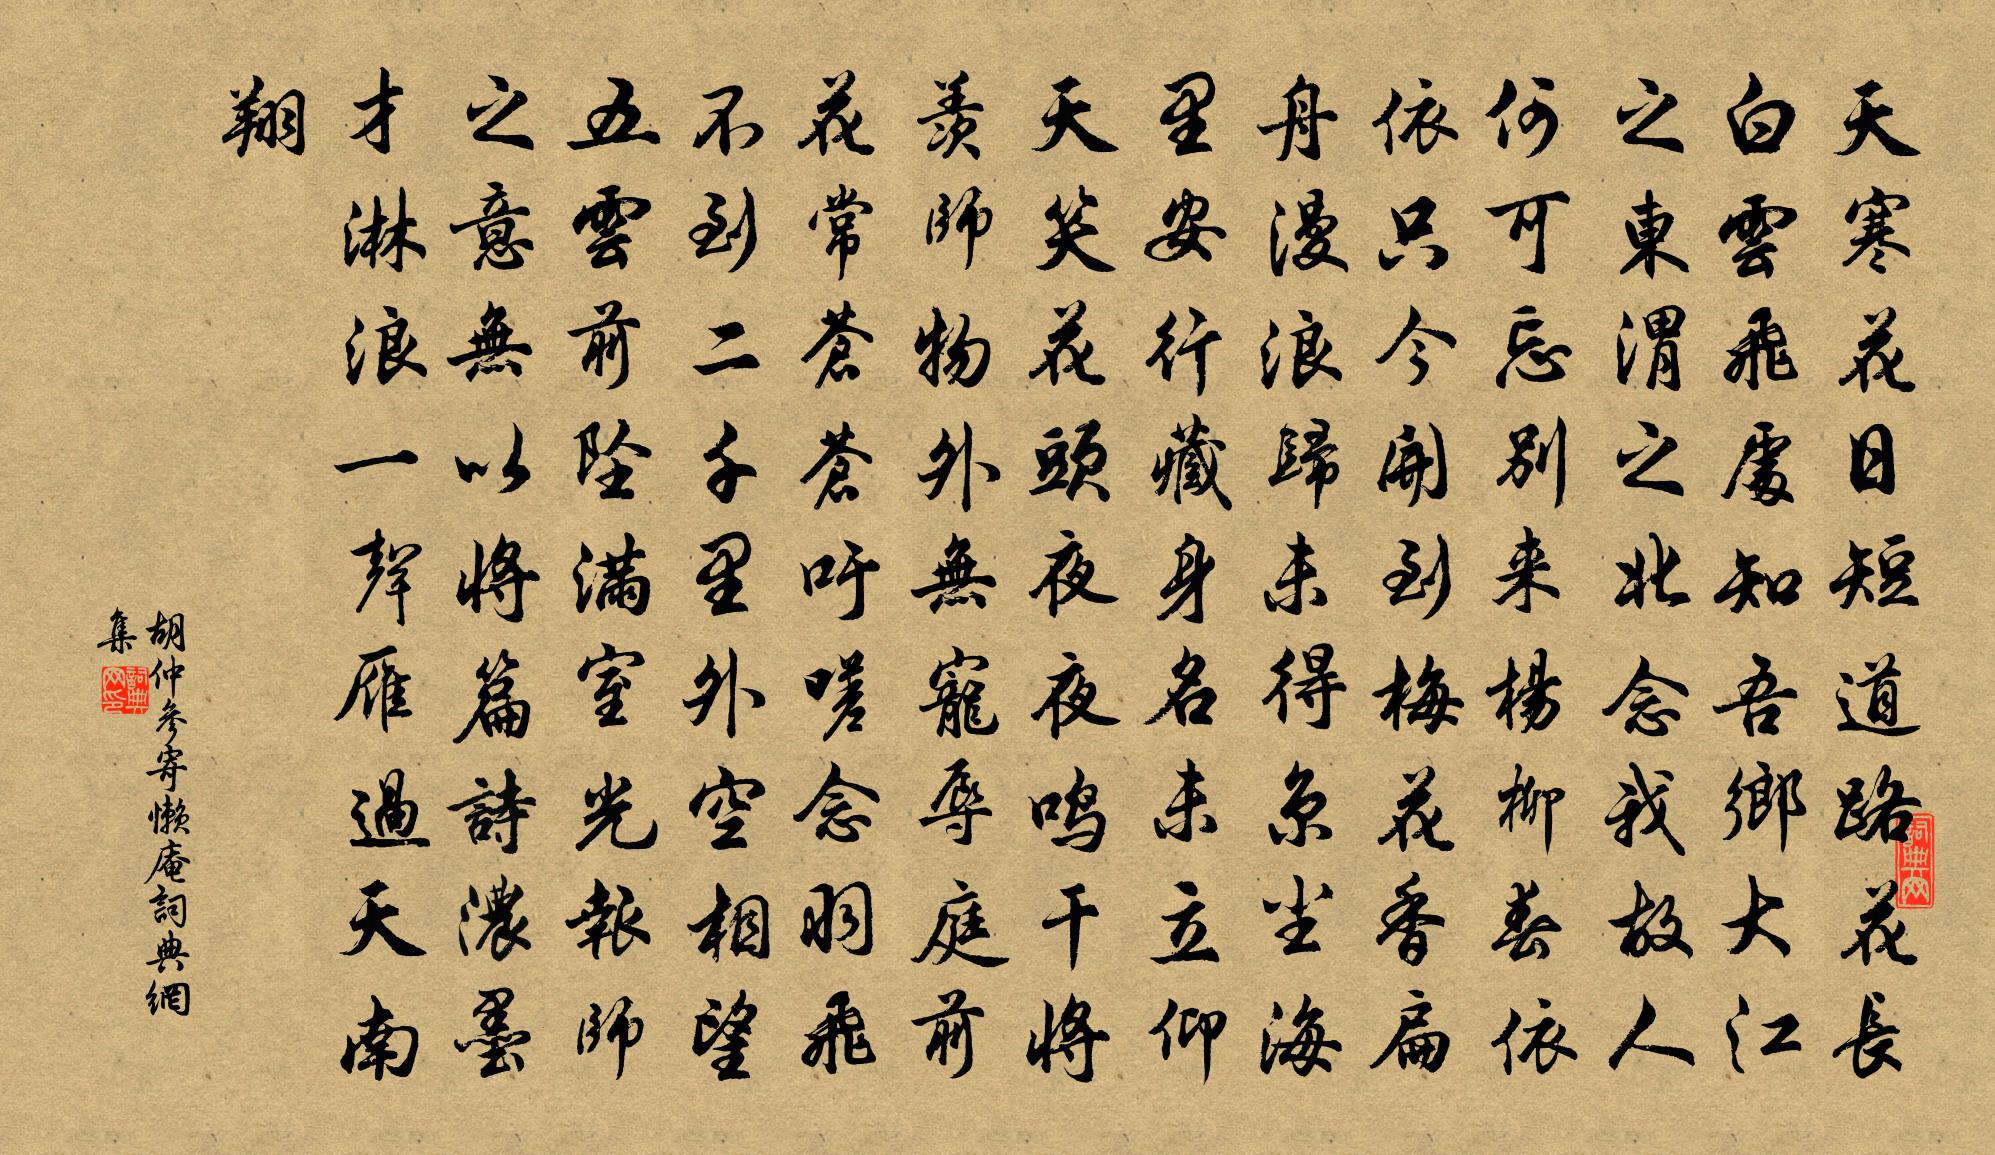 天寒花日短道路花長
白雲飛處知吾鄉大江
之東渭之北念我故人
何可忘別来楊柳春依
依只今開到梅花香扁
舟漫浪歸未得京尘海
里安行藏身名未立仰
天笑花頭夜夜鸣干將
羨師物外無寵辱庭前
花常蒼蒼吁嗟念羽飛
不到二千里外空相望
五雲前墜满室光報師
之意無以將篇詩濃墨
才淋浪一聲雁過天南
翔
胡仲參寄懒庵詞典網
集
詞典网
詞典网印